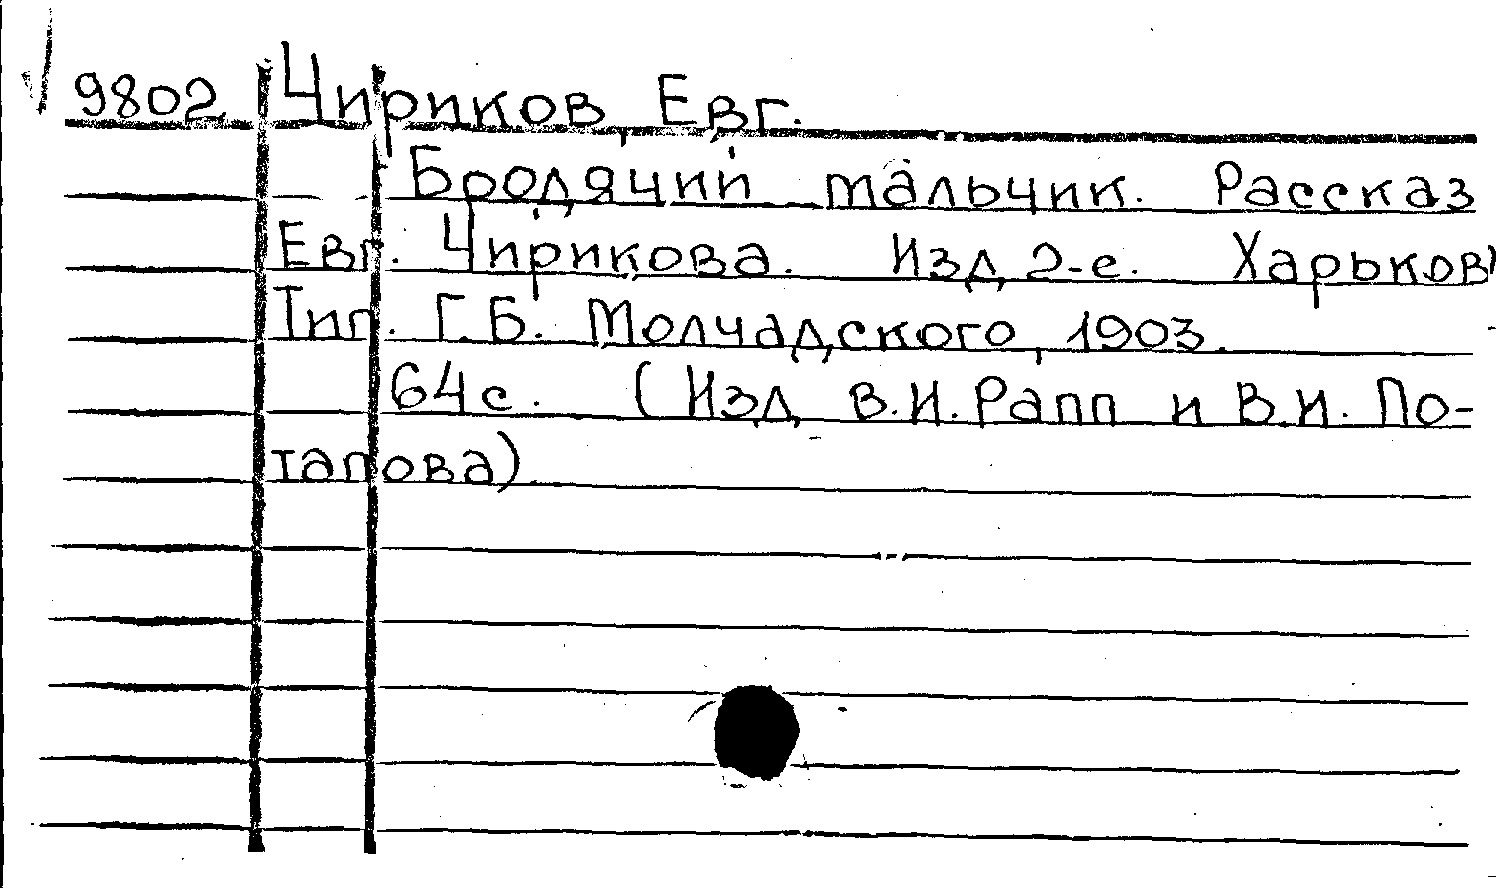 9802 Чириков, Евг.
Бродячий мальчик. Рассказ
Евг. Чирикова. Изд. 2-е. Харьков,
Тип. Г.Б. Молчадского, 1903.
64 с. (Изд. В.И. Рапп и В.И. По-
тапова).